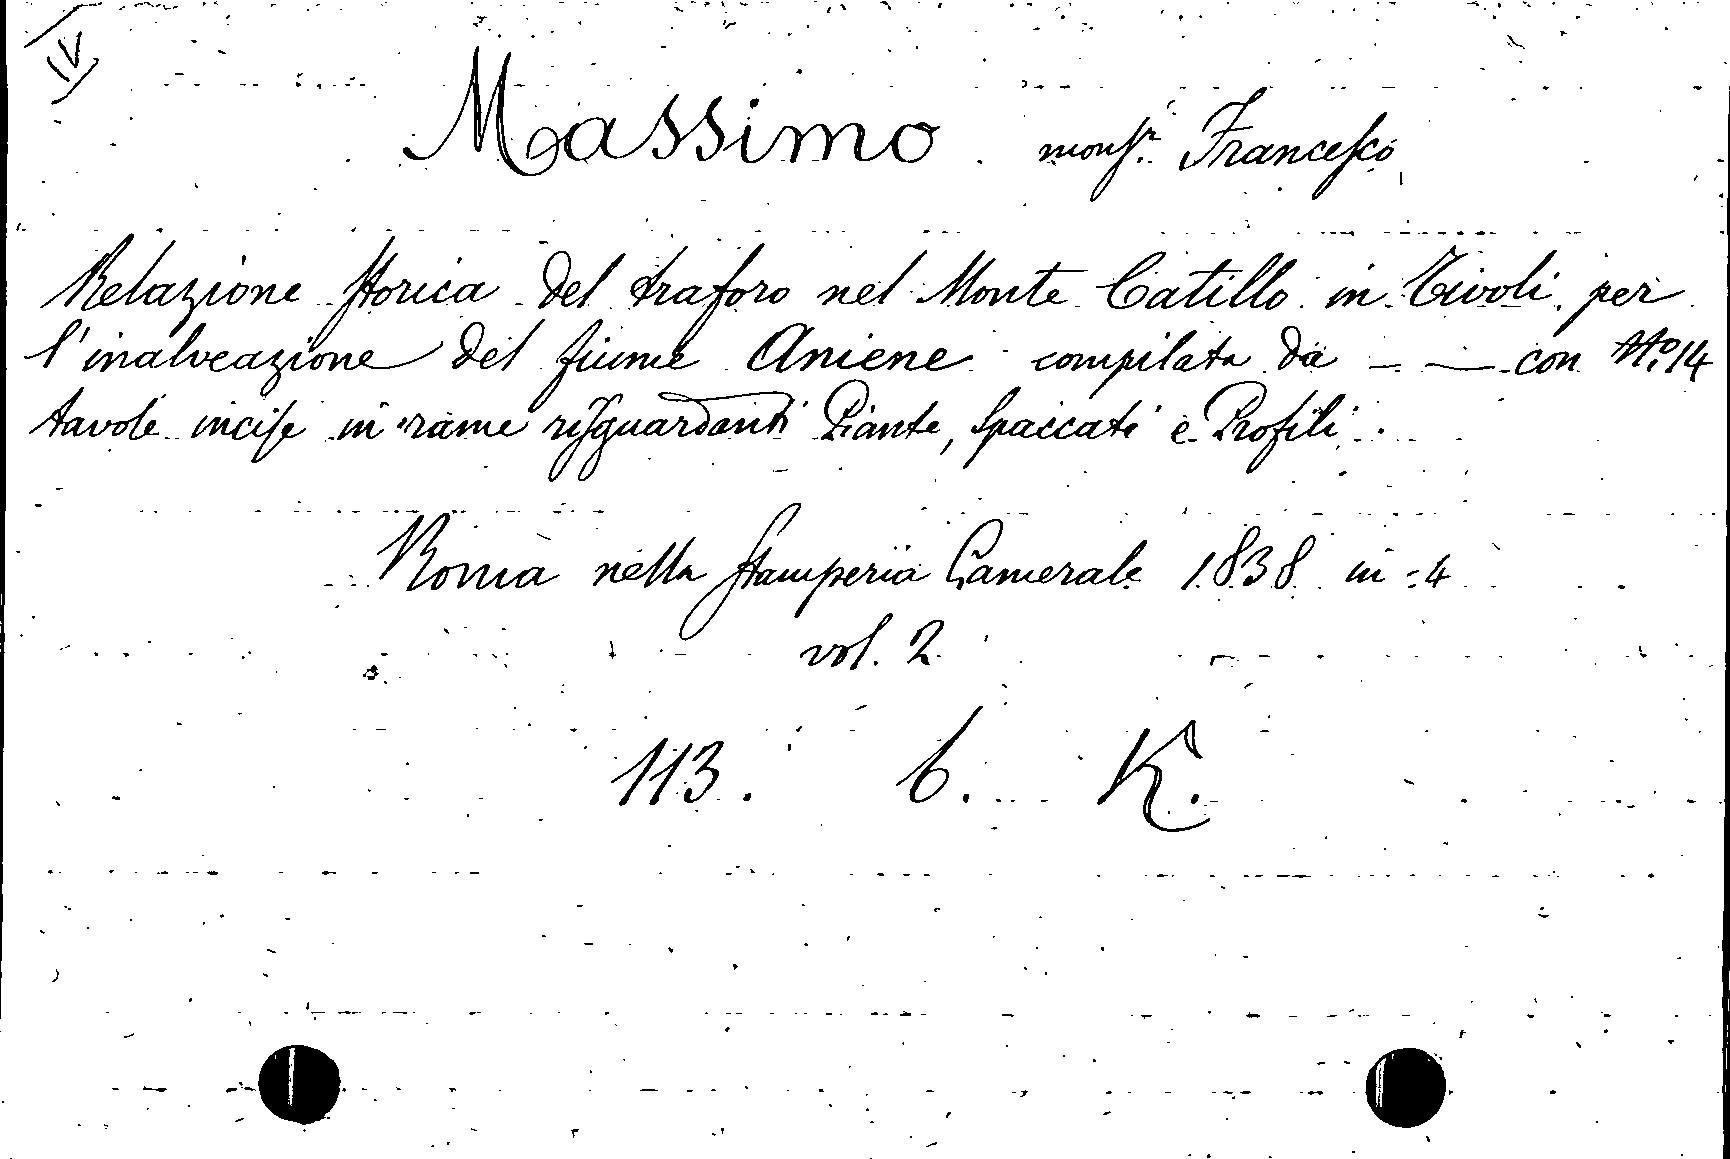 IV
Massimo monsr. Francesco
Relazione storica del traforo nel Monte Catillo in Tivoli per
l'inalveazione del fiume Aniene compilata da — — con No. 14
tavole incise in rame risguardanti Piante, Spaccati e Profili.
Roma nella Stamperia Camerale 1838 in-4
vol. 2
113. 6. K.